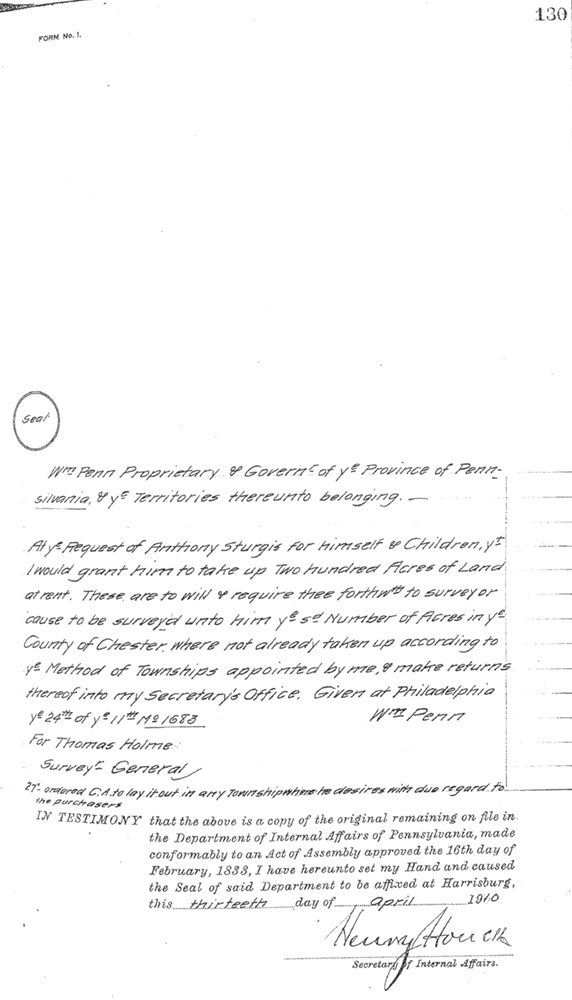 130
FORM No. 1.
Seal
Wm Penn Proprietary & Governr of ye Province of Penn-
silvania, & ye Territories thereunto belonging. —
At ye Request of Anthony Sturgis for himself & Children, yt
I would grant him to take up Two hundred Acres of Land
at rent. These are to will & require thee forthwth to survey or
cause to be survey'd unto him ye sd Number of Acres in ye
County of Chester, where not already taken up according to
ye Method of Townships appointed by me, & make returns
thereof into my Secretary's Office. Given at Philadelphia
ye 24th of ye 11th Mo 1683 Wm Penn
For Thomas Holme
Surveyr General
27- ordered C.A. to lay it out in any Township where he desires with due regard to
the purchasers
IN TESTIMONY that the above is a copy of the original remaining on file in
the Department of Internal Affairs of Pennsylvania, made
conformably to an Act of Assembly approved the 16th day of
February, 1833, I have hereunto set my Hand and caused
the Seal of said Department to be affixed at Harrisburg,
this thirteeth day of April 1910
Henry Houck
Secretary of Internal Affairs.